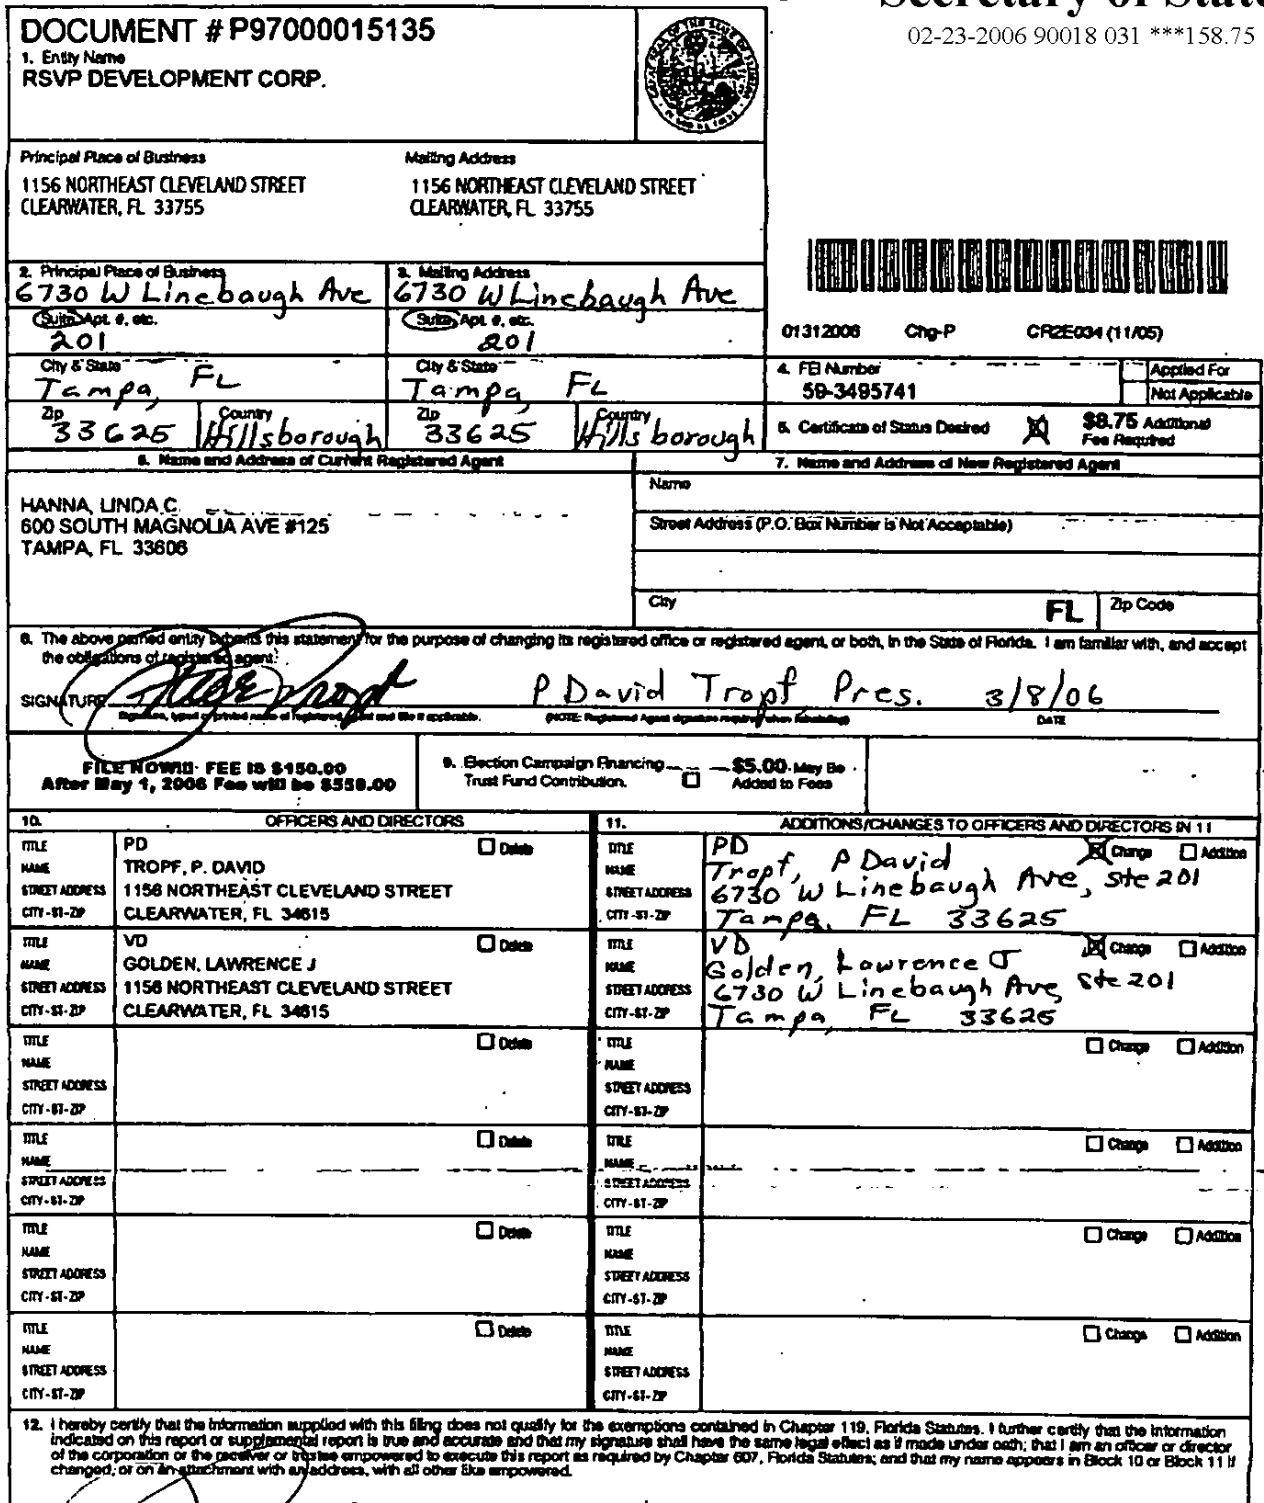 Secretary of State
02-23-2006 90018 031 ***158.75
DOCUMENT # P97000015135
1. Entity Name
RSVP DEVELOPMENT CORP.
Principal Place of Business
1156 NORTHEAST CLEVELAND STREET
CLEARWATER, FL 33755
Mailing Address
1156 NORTHEAST CLEVELAND STREET
CLEARWATER, FL 33755
2. Principal Place of Business
6730 W Linebaugh Ave
Suite, Apt. #, etc.
201
City & State
Tampa, FL
Zip
33625
Country
Hillsborough
3. Mailing Address
6730 W Linebaugh Ave
Suite, Apt. #, etc.
201
City & State
Tampa, FL
Zip
33625
Country
Hillsborough
01312006 Chg-P CR2E034 (11/05)
4. FEI Number
59-3495741
Applied For
Not Applicable
5. Certificate of Status Desired
$8.75 Additional
Fee Required
6. Name and Address of Current Registered Agent
HANNA, LINDA C.
600 SOUTH MAGNOLIA AVE #125
TAMPA, FL 33606
7. Name and Address of New Registered Agent
Name
Street Address (P.O. Box Number is Not Acceptable)
City
FL
Zip Code
8. The above named entity submits this statement for the purpose of changing its registered office or registered agent, or both, in the State of Florida. I am familiar with, and accept
the obligations of registered agent.
SIGNATURE
P David Tropf, Pres. 3/8/06
Signature, typed or printed name of registered agent and title if applicable.
(NOTE: Registered Agent signature required when reinstating)
DATE
FILE NOW!!! FEE IS $150.00
After May 1, 2006 Fee will be $550.00
9. Election Campaign Financing
Trust Fund Contribution.
$5.00 May Be
Added to Fees
10. OFFICERS AND DIRECTORS
TITLE PD Delete
NAME TROPF, P. DAVID
STREET ADDRESS 1156 NORTHEAST CLEVELAND STREET
CITY-ST-ZIP CLEARWATER, FL 34615
TITLE VD Delete
NAME GOLDEN, LAWRENCE J
STREET ADDRESS 1156 NORTHEAST CLEVELAND STREET
CITY-ST-ZIP CLEARWATER, FL 34615
TITLE Delete
NAME
STREET ADDRESS
CITY-ST-ZIP
TITLE Delete
NAME
STREET ADDRESS
CITY-ST-ZIP
TITLE Delete
NAME
STREET ADDRESS
CITY-ST-ZIP
TITLE Delete
NAME
STREET ADDRESS
CITY-ST-ZIP
11. ADDITIONS/CHANGES TO OFFICERS AND DIRECTORS IN 11
TITLE PD Change Addition
NAME Tropf, P David
STREET ADDRESS 6730 W Linebaugh Ave, ste 201
CITY-ST-ZIP Tampa, FL 33625
TITLE VD Change Addition
NAME Golden, Lawrence J
STREET ADDRESS 6730 W Linebaugh Ave, ste 201
CITY-ST-ZIP Tampa, FL 33625
TITLE Change Addition
NAME
STREET ADDRESS
CITY-ST-ZIP
TITLE Change Addition
NAME
STREET ADDRESS
CITY-ST-ZIP
TITLE Change Addition
NAME
STREET ADDRESS
CITY-ST-ZIP
TITLE Change Addition
NAME
STREET ADDRESS
CITY-ST-ZIP
12. I hereby certify that the information supplied with this filing does not qualify for the exemptions contained in Chapter 119, Florida Statutes. I further certify that the information
indicated on this report or supplemental report is true and accurate and that my signature shall have the same legal effect as if made under oath; that I am an officer or director
of the corporation or the receiver or trustee empowered to execute this report as required by Chapter 607, Florida Statutes; and that my name appears in Block 10 or Block 11 if
changed, or on an attachment with an address, with all other like empowered.